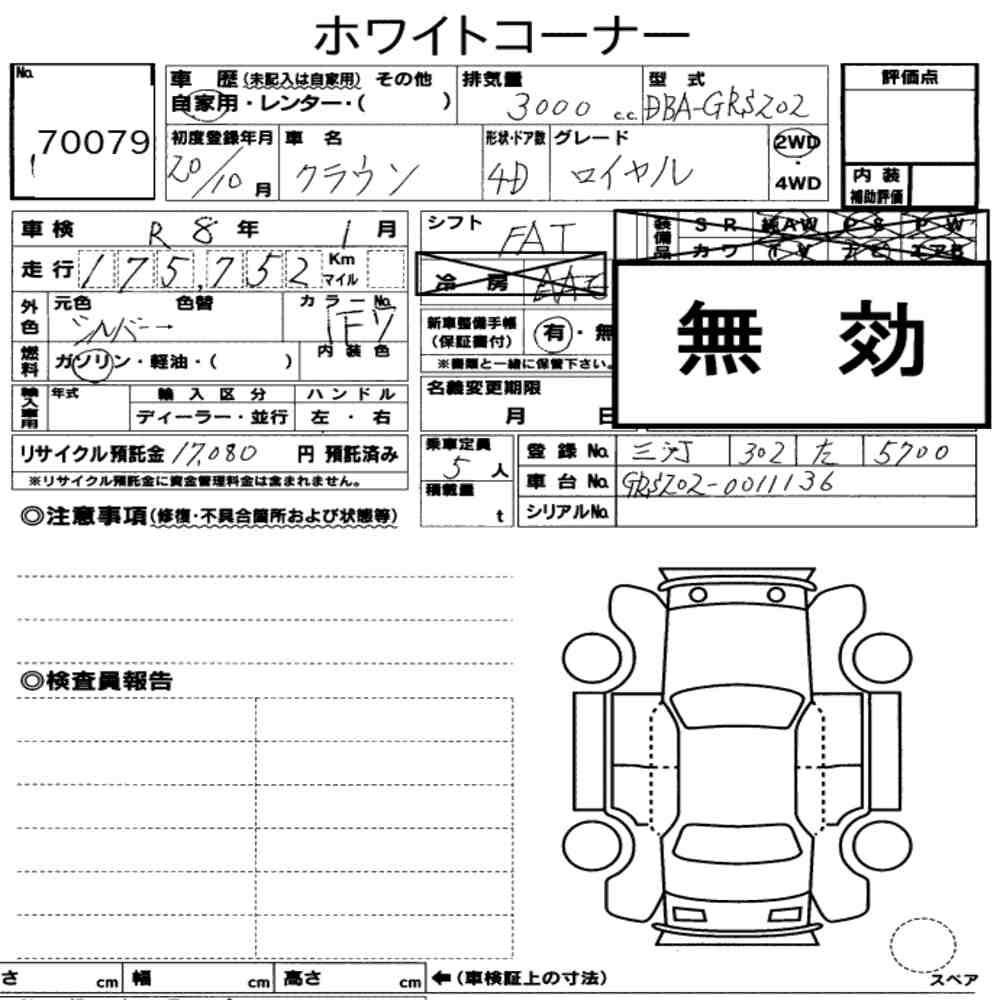 ホワイトコーナー
No. 70079
車歴(未記入は自家用) その他 排気量 型式 評価点
自家用・レンター・( ) 3000 c.c. DBA-GRS202
初度登録年月 車名 形状・ドア数 グレード 2WD
20/10月 クラウン 4D ロイヤル ・
4WD 内装
補助評価
車検 R 8年 1月 シフト FAT 装備品 S R AW P S P W
カワ T V ナビ エアB
走行 175,752 Km
マイル 冷房 AAC
外色 元色 色替 カラーNo.
シルバー 1F7 新車整備手帳
(保証書付) 有・無
無効
燃料 ガソリン・軽油・( ) 内装色 ※書類と一緒に保管下さい。
輸入車用 年式 輸入区分 ハンドル 名義変更期限
ディーラー・並行 左・右 月 日
リサイクル預託金 17,080 円 預託済み 乗車定員 登録No. 三河 302 た 5700
5人
※リサイクル預託金に資金管理料金は含まれません。 積載量 車台No. GRS202-0011136
t シリアルNo.
◎注意事項(修復・不具合箇所および状態等)
◎検査員報告
さ cm 幅 cm 高さ cm ←(車検証上の寸法) スペア